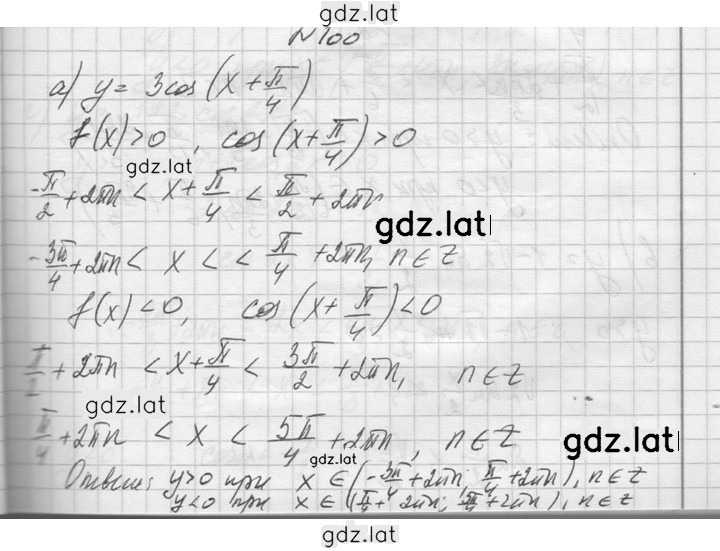 gdz.lat
N 100
а) y = 3cos(x + π/4)
f(x) > 0, cos(x + π/4) > 0
gdz.lat
-π/2 + 2πn < x + π/4 < π/2 + 2πn
gdz.lat
-3π/4 + 2πn < x < < π/4 + 2πn, n ∈ Z
f(x) < 0, cos(x + π/4) < 0
π/2 + 2πn < x + π/4 < 3π/2 + 2πn, n ∈ Z
gdz.lat
π/4 + 2πn < x < 5π/4 + 2πn, n ∈ Z
gdz.lat
gdz.lat
Ответ: y>0 при x ∈ (-3π/4 + 2πn; π/4 + 2πn), n ∈ Z
y<0 при x ∈ (π/4 + 2πn; 5π/4 + 2πn), n ∈ Z
gdz.lat